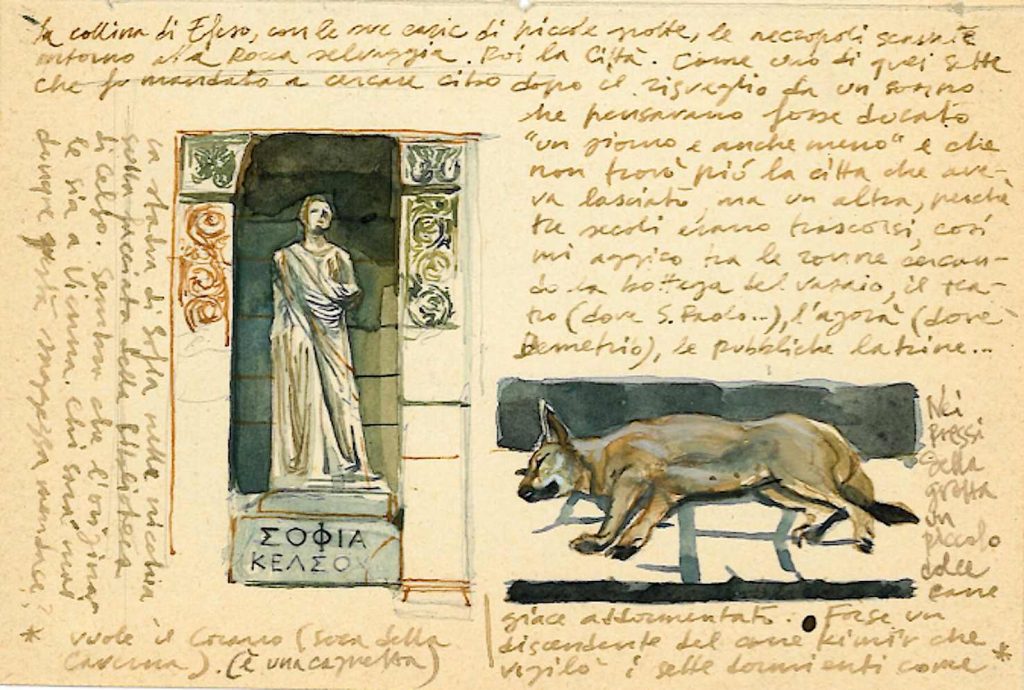 La collina di Efeso, con le sue cave di piccole grotte, le necropoli scavate
intorno alla Rocca selvaggia. Poi la Città. Come uno di quei sette
che fu mandato a cercare cibo dopo il risveglio da un sonno
che pensavano fosse durato
"un giorno e anche meno" e che
non trovò più la città che ave-
va lasciato, ma un altra, perché
tre secoli erano trascorsi, così
mi aggiro tra le rovine cercan-
do la bottega del vasaio, il tea-
tro (dove S. Paolo...), l'agorà (dove
Demetrio), le pubbliche latrine...
La statua di Sofia nella nicchia
sulla facciata della Biblioteca
di Celso. Sembra che l'origina-
le sia a Vienna. Chi sarà mai
dunque questa saggezza mendace?
ΣΟΦΙΑ
ΚΕΛΣΟΥ
Nei
pressi
della
grotta
un
piccolo
dolce
cane
giace addormentato. Forse un
discendente del cane Kimir che
vigilò i sette dormienti come *
* vuole il Corano (Sura della
Caverna). (è una cagnetta)